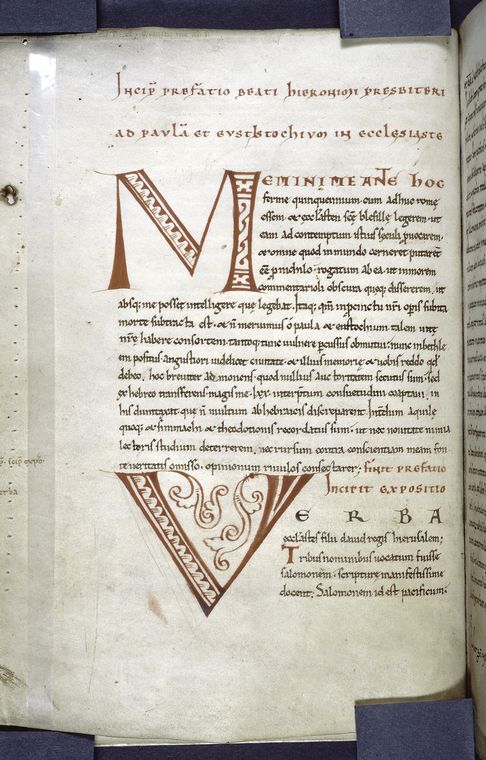 Incip prefatio beati hieronimi presbiteri
ad paulā et eustochium in ecclesiaste
MEMINI ME ANTE HOC
ferme quinquennium cum adhuc rome
essem & eccl'asten scē blesille legerem ut
eam ad contemptum istius seculi puocarem.
& omne quod in mundo cerneret putaret
eē p nichilo. rogatum ab ea ut in morem
commentarioli obscura queq; dissererem. ut
absq; me posset intelligere que legebat. Itaq; qm̄ in pcinctu nr̄i opis subita
morte subtracta est. & n̄ meruimus o paula & eustochium talem uitę
nr̄ę habere consortem. tantoq; tunc uulnere pcussus obmutui. nunc in bethle
em positus. angustiori uidelicet ciuitate. & illius memorię & uobis reddo qd
debeo. hoc breuiter admonens. quod nullius auctoritatem secutus sum. sed
ex hebreo transferens magis me. lxx. interptum consuetudini coaptaui. in
his dumtaxat. que n̄ multum ab hebraicis discreparent. Interdum aquile
quoq; & simmachi & theodotionis recordatus sum. ut nec nouitate nimia
lectoris studium deterrerem. nec rursum contra conscientiam meam fon
te ueritatis omisso. opinionum riuulos consectarer; finit prefatio
Incipit expositio
VERBA
eccl'astes filii dauid regis hierusalem;
Tribus nominibus uocatum fuisse
salomonem. scripture manifestissime
docent; Salomonem id est pacificum.